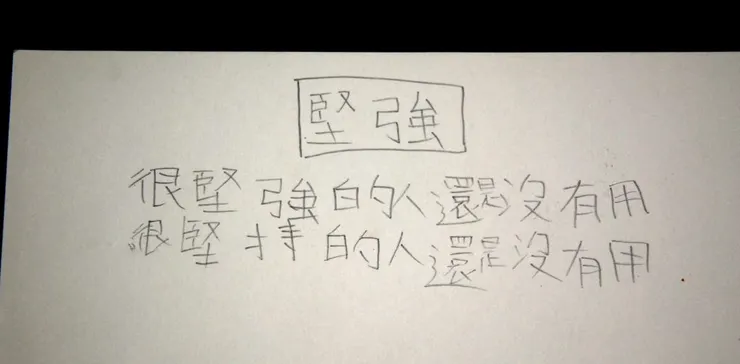 堅強
很堅強的人還是没有用
很堅持的人還是没有用